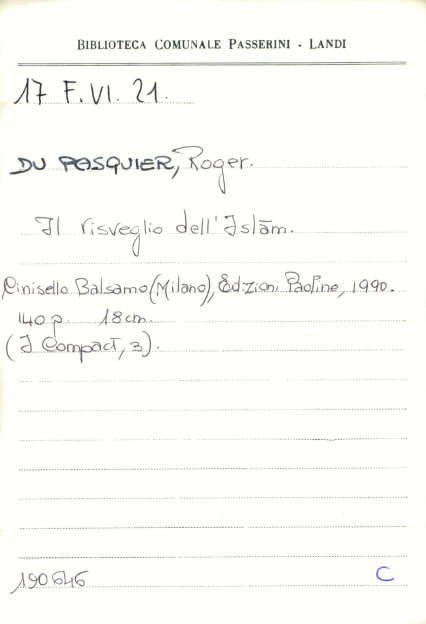 BIBLIOTECA COMUNALE PASSERINI - LANDI
17 F.VI. 21.
DU PASQUIER, Roger.
Il risveglio dell'Islām.
Cinisello Balsamo (Milano), Edizioni Paoline, 1990.
140 p. 18 cm.
(I Compact, 3).
190646 C